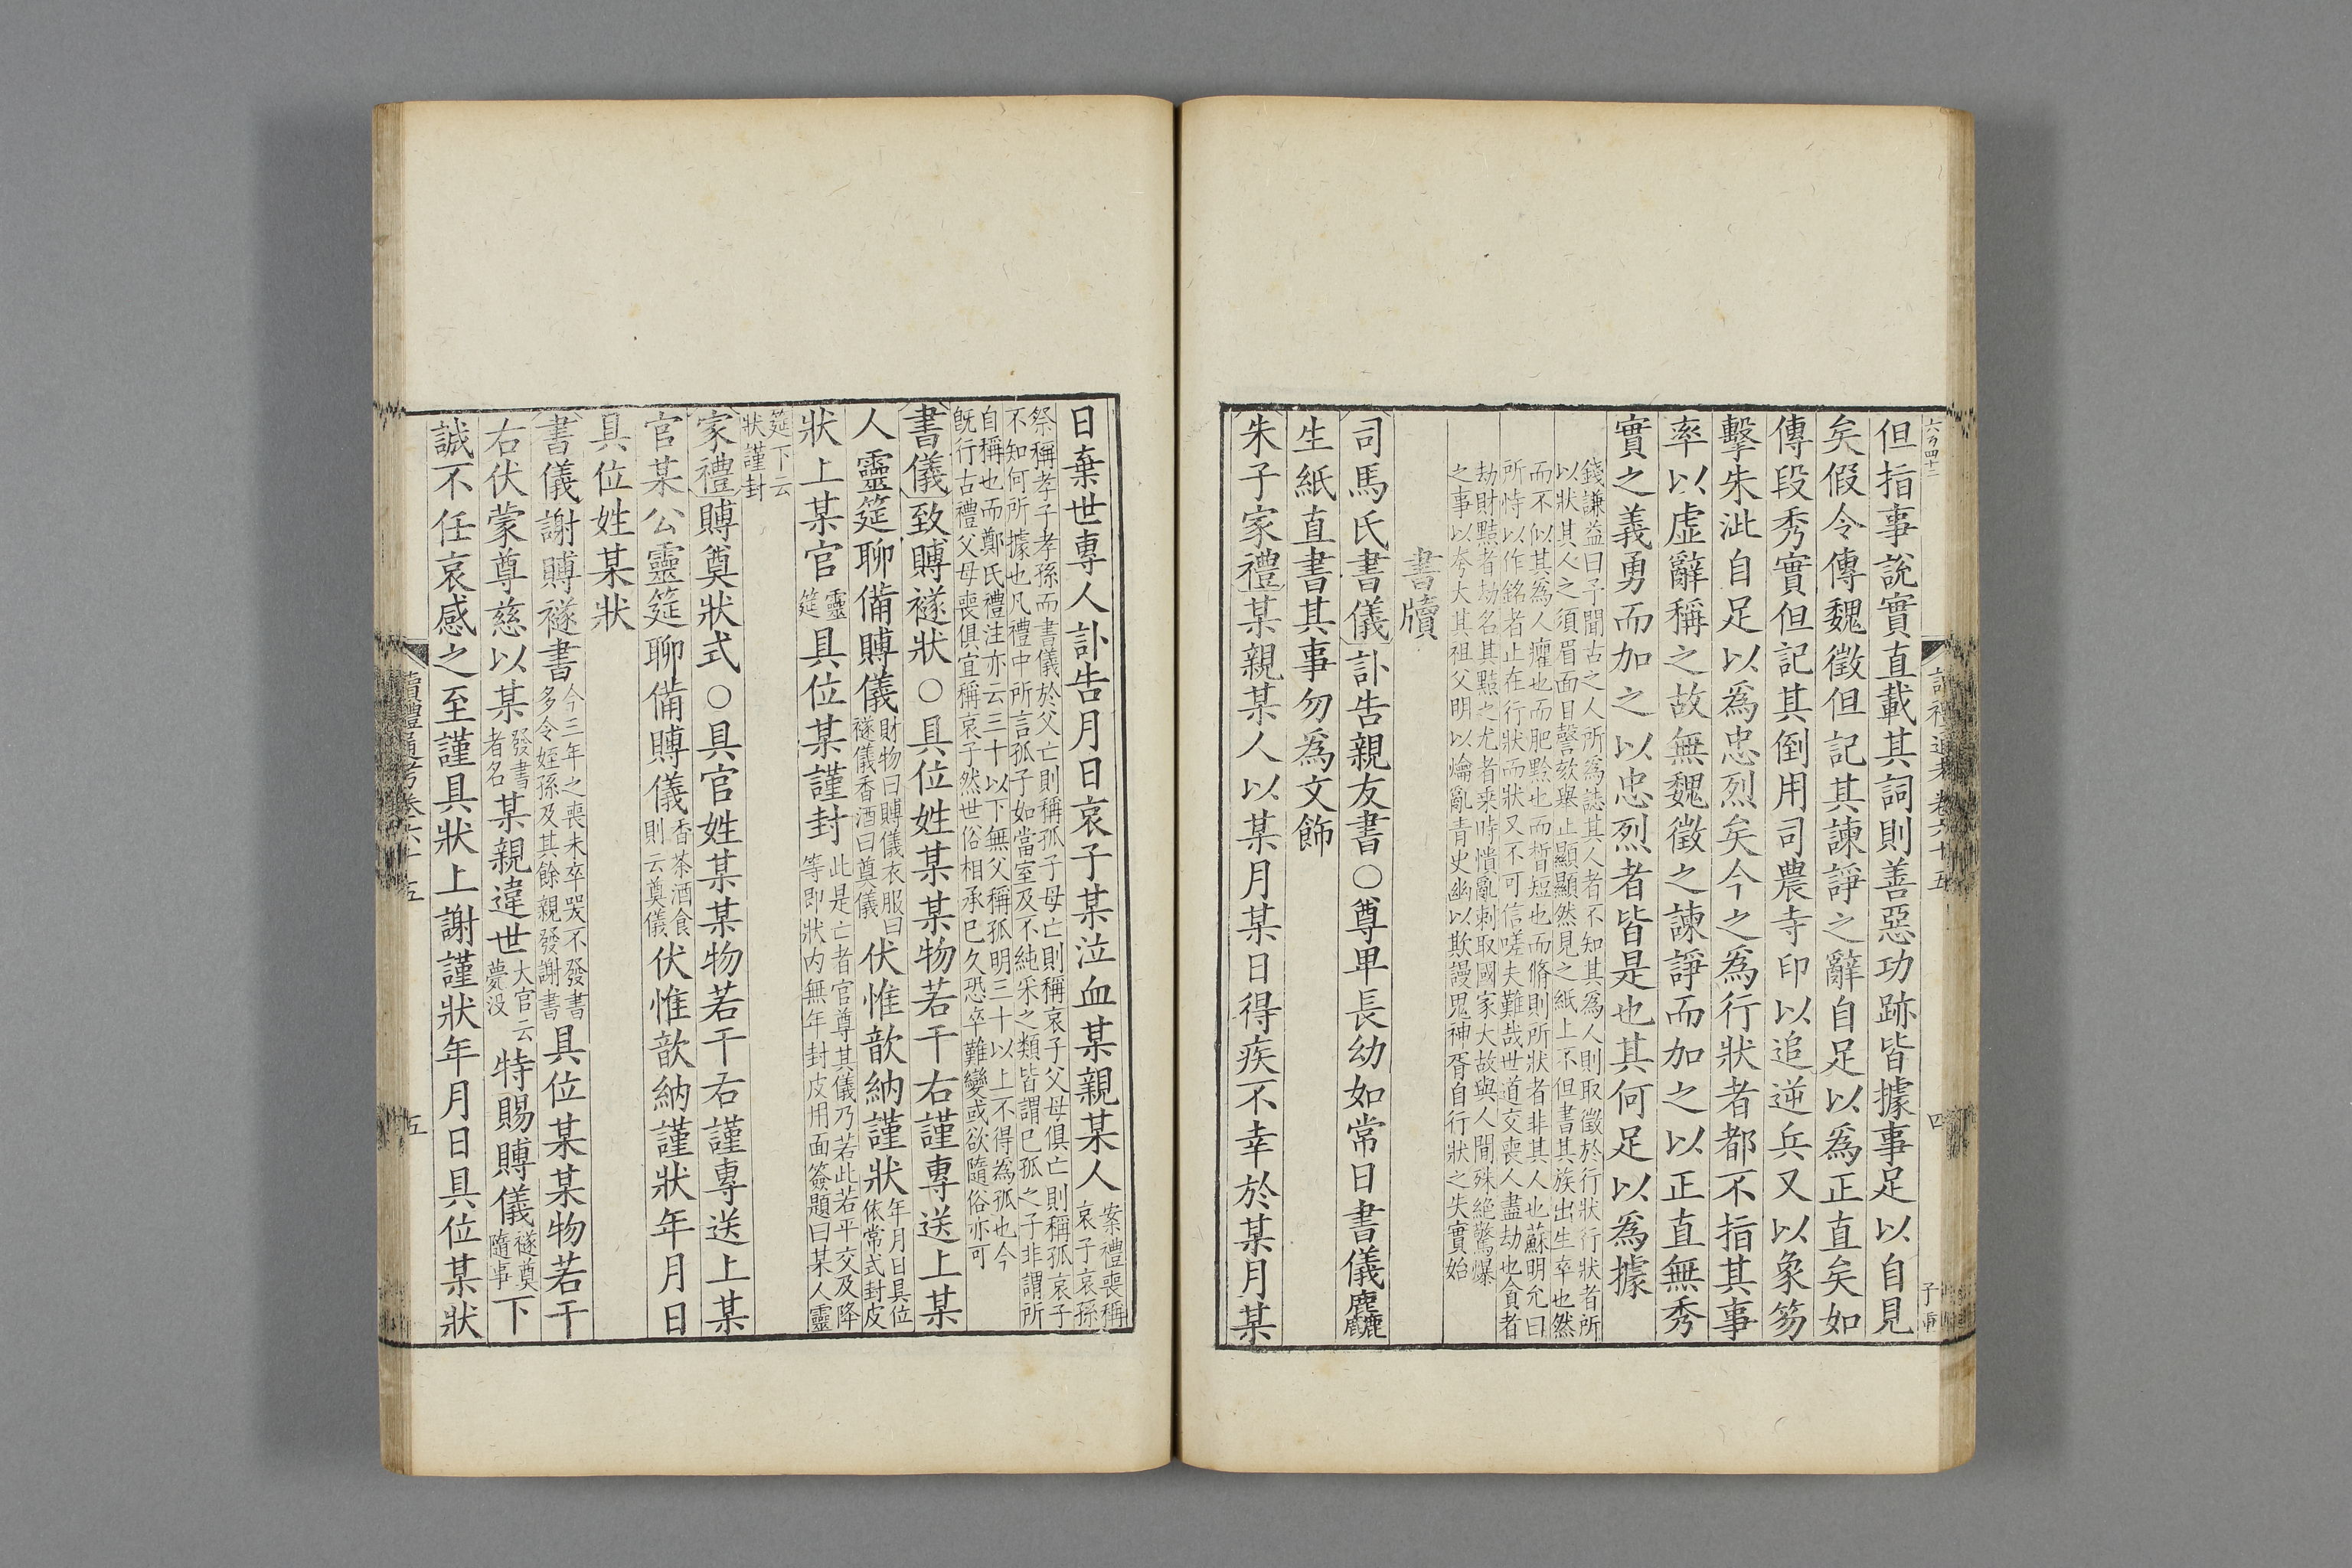 但指事說實直載其詞則善惡功跡皆據事足以自見
矣假令傳魏徵但記其諫諍之辭自足以爲正直矣如
傳段秀實但記其倒用司農寺印以追逆兵又以象笏
擊朱泚自足以爲忠烈矣今之爲行狀者都不指其事
率以虛辭稱之故無魏徵之諫諍而加之以正直無秀
實之義勇而加之以忠烈者皆是也其何足以爲據
錢謙益曰予聞古之人所爲誌其人者不知其爲人則取徵於行狀行狀者所
以狀其人之須眉面目謦欬舉止顯顯然見之紙上不但書其族出生卒也然
而不似其爲人癯也而肥黔也而晳短也而脩則所狀者非其人也蘇明允曰
所恃以作銘者止在行狀而狀又不可信嗟夫難哉世道交喪人盡劫也貪者
劫財黠者劫名其黠之尤者乘時憒亂刺取國家大故與人間殊絕驚爆
之事以夸大其祖父明以爚亂青史幽以欺謾鬼神胥自行狀之失實始
書牘
司馬氏書儀訃告親友書○尊卑長幼如常日書儀麤
生紙直書其事勿爲文飾
朱子家禮某親某人以某月某日得疾不幸於某月某
日棄世專人訃告月日哀子某泣血某親某人案禮喪稱
哀子哀孫
祭稱孝子孝孫而書儀於父亡則稱孤子母亡則稱哀子父母俱亡則稱孤哀子
不知何所據也凡禮中所言孤子如當室及不純采之類皆謂已孤之子非謂所
自稱也而鄭氏禮注亦云三十以下無父稱孤明三十以上不得為孤也今
旣行古禮父母喪俱宜稱哀子然世俗相承已久恐卒難變或欲隨俗亦可
書儀致賻襚狀○具位姓某某物若干右謹專送上某
人靈筵聊備賻儀財物曰賻儀衣服曰
襚儀香酒曰奠儀伏惟歆納謹狀年月日具位
依常式封皮
狀上某官靈
筵具位某謹封此是亡者官尊其儀乃若此若平交及降
等即狀内無年封皮用面簽題曰某人靈
筵下云
狀謹封
家禮賻奠狀式○具官姓某某物若干右謹專送上某
官某公靈筵聊備賻儀香茶酒食
則云奠儀伏惟歆納謹狀年月日
具位姓某狀
書儀謝賻襚書今三年之喪未卒哭不發書
多令姪孫及其餘親發謝書具位某某物若干
右伏蒙尊慈以某發書
者名某親違世大官云
薨没特賜賻儀襚奠
隨事下
誠不任哀感之至謹具狀上謝謹狀年月日具位某狀
讀禮通考卷六十五
五